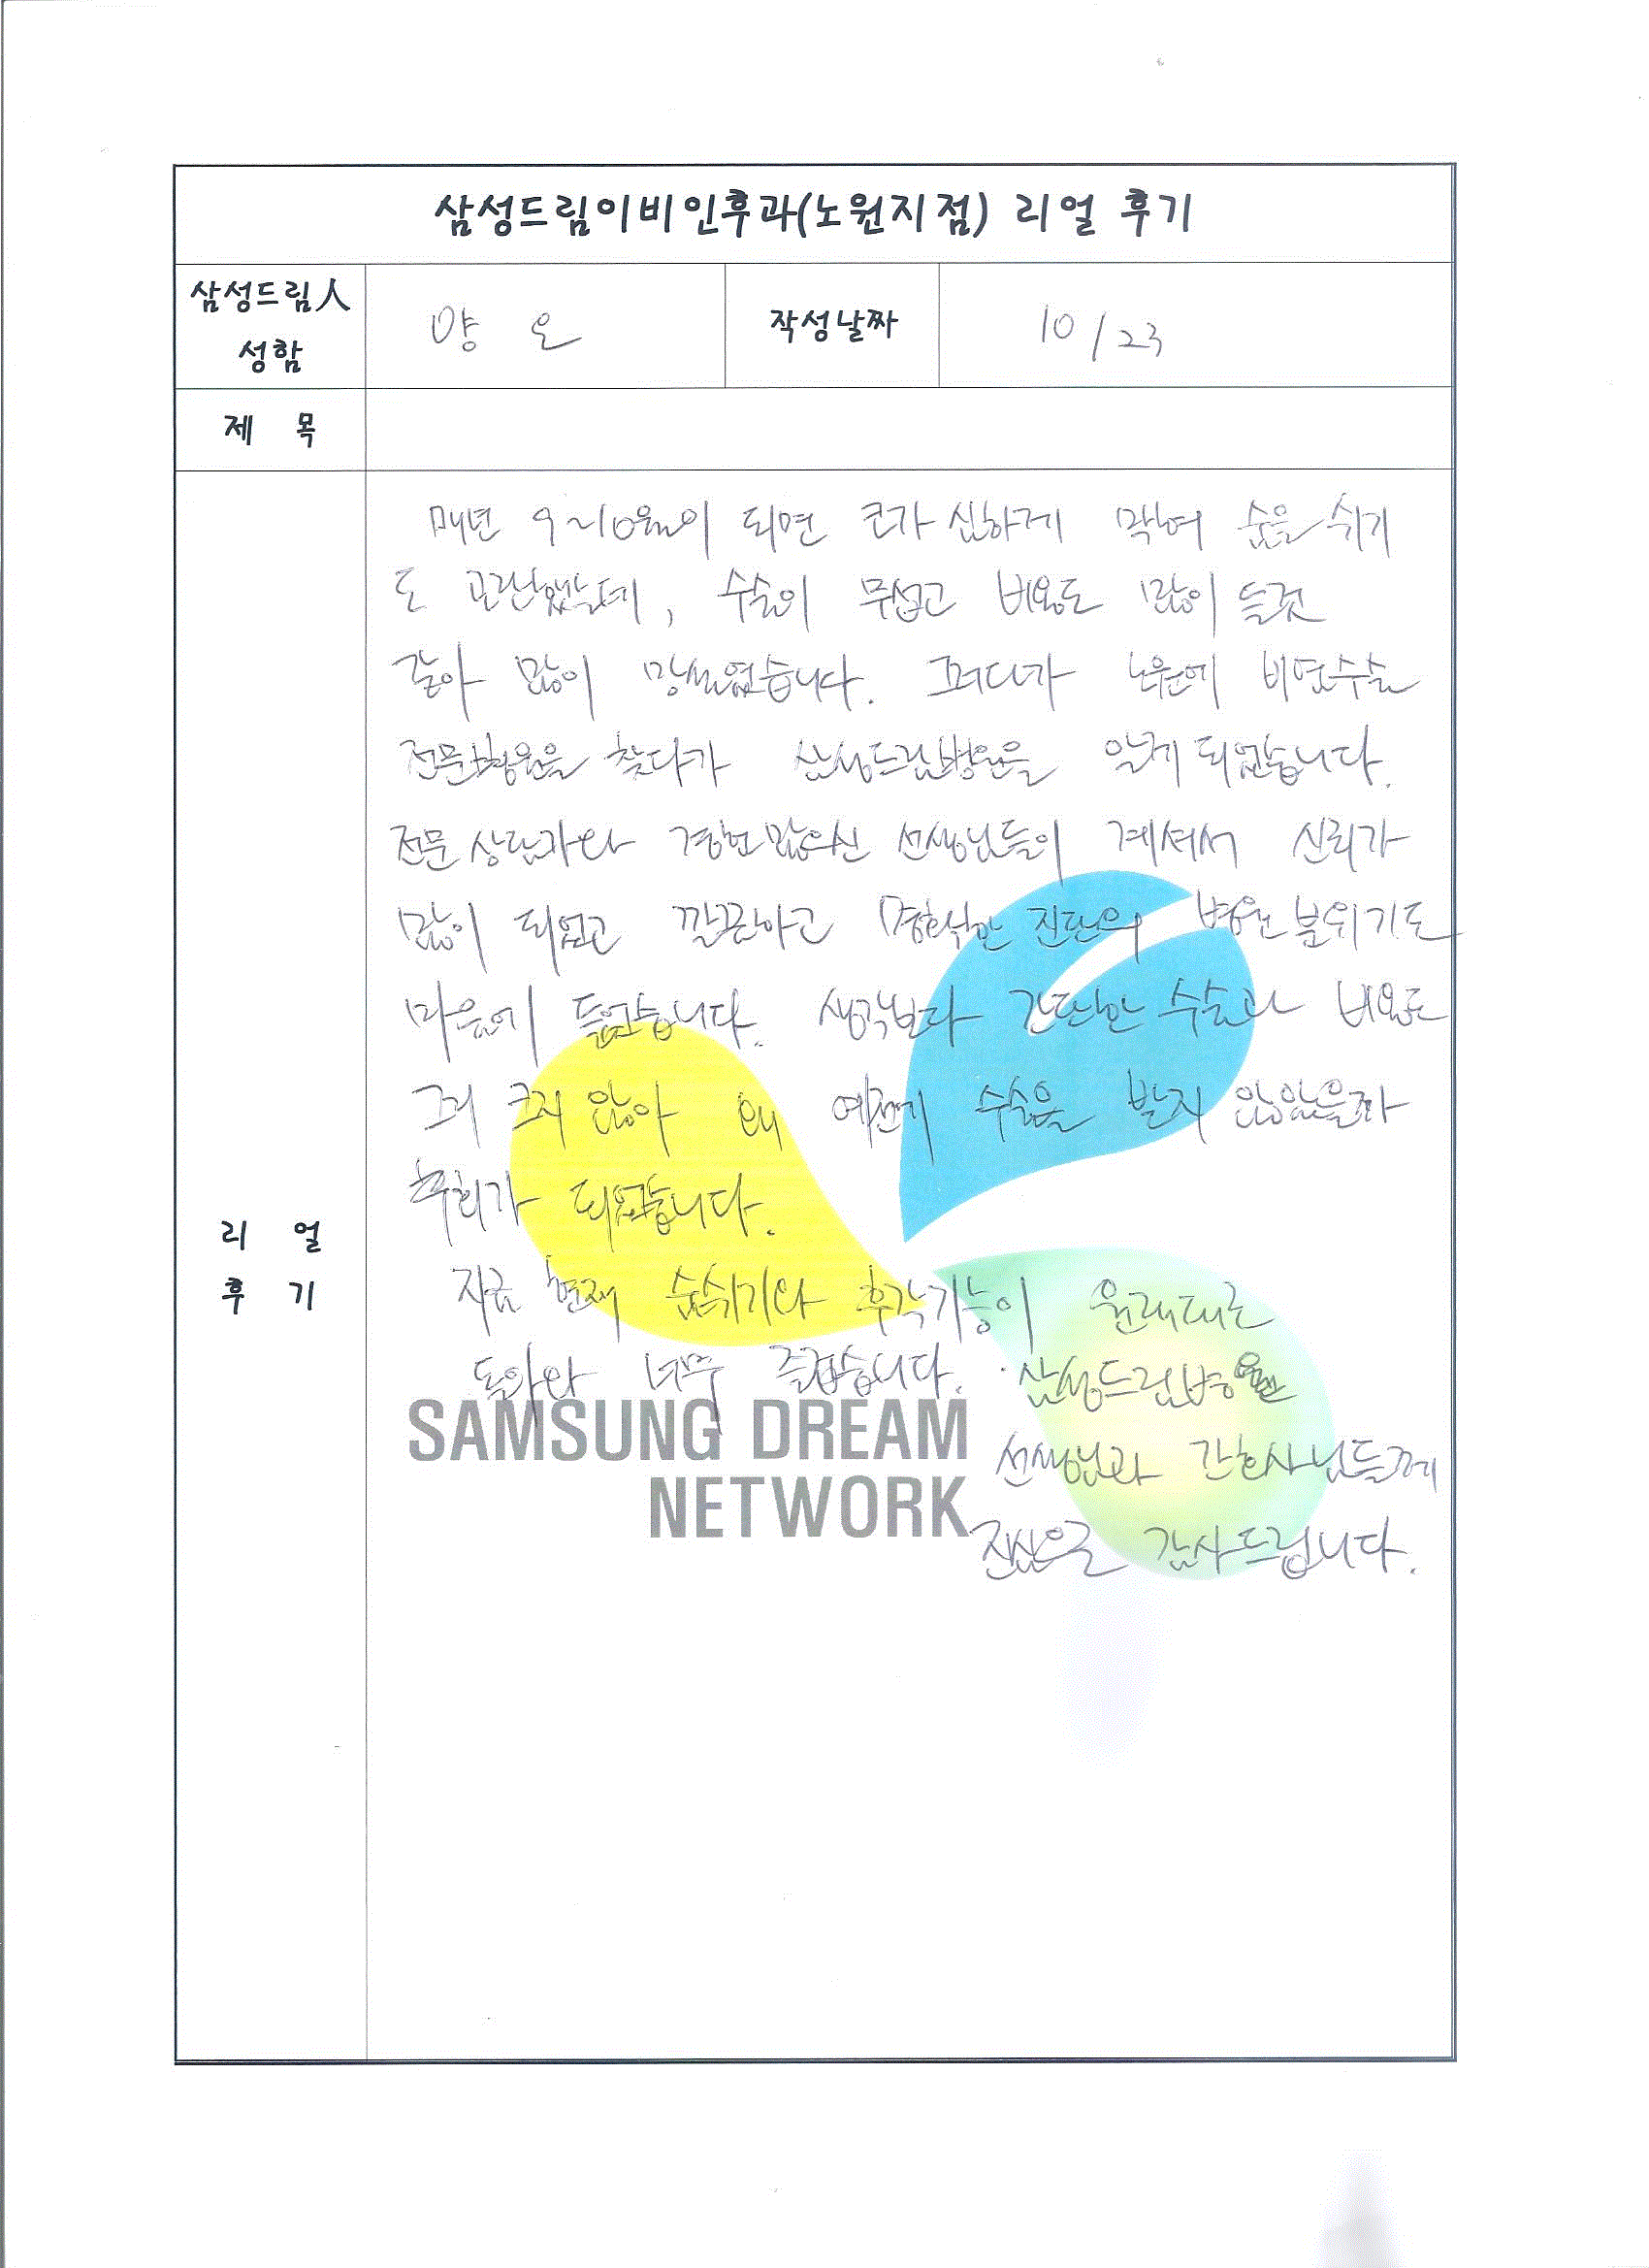 삼성드림이비인후과(노원지점) 리얼 후기
삼성드림人
성함
양 은
작성날짜
10/23
제 목
리 얼
후 기
매년 9~10월이 되면 코가 심하게 막혀 숨을 쉬기
도 곤란했는데, 수술이 무섭고 비용도 많이 들것
같아 많이 망설였습니다. 그러다가 노원에 비염수술
전문병원을 찾다가 삼성드림병원을 알게 되었습니다.
전문 상담가와 경험많으신 선생님들이 계셔서 신뢰가
많이 되었고 깔끔하고 명확한 진단의 병원 분위기도
마음에 들었습니다. 생각보다 간단한 수술과 비용도
그리 크지 않아 왜 예전에 수술을 받지 않았을까
후회가 되었습니다.
지금 현재 숨쉬기와 후각기능이 원래대로
돌아와 너무 즐겁습니다. 삼성드림병원
선생님과 간호사님들께
진심으로 감사드립니다.
SAMSUNG DREAM
NETWORK